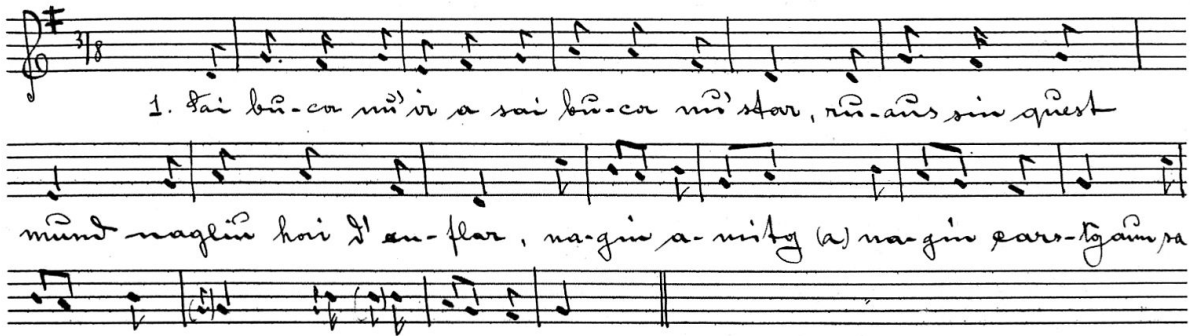 3/8
1. Sai bu-ca nu'ir a sai bu-ca nu'star, ru-aus sin quest
mund nagliu hai d'an-flar, na-gin a-mitg (a) na-gin cars-tgaun sa